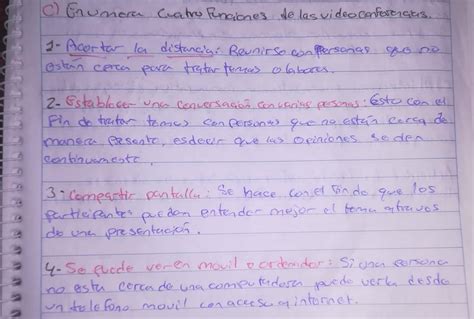 c) Enumera cuatro funciones de las videoconferencias.
1- Acortar la distancia: Reunirse con personas que no
están cerca para tratar temas o labores.
2- Establecer una conversación con varias personas: Esto con el
fin de tratar temas con personas que no están cerca de
manera presente, es decir que las opiniones se den
continuamente.
3- Compartir pantalla: Se hace con el fin de que los
participantes puedan entender mejor el tema a traves
de una presentación.
4- Se puede ver en movil o ordenador: Si una persona
no esta cerca de una computadora puede verla desde
un telefono movil con acceso a internet.